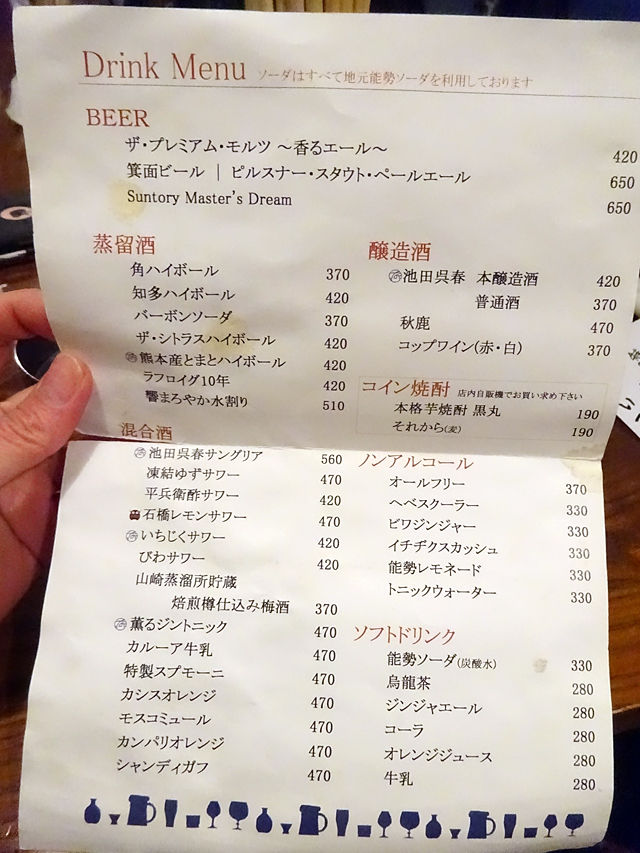 Drink Menu ソーダはすべて地元能勢ソーダを利用しております
BEER
ザ・プレミアム・モルツ 〜香るエール〜 420
箕面ビール | ピルスナー・スタウト・ペールエール 650
Suntory Master's Dream 650
蒸留酒
角ハイボール 370
知多ハイボール 420
バーボンソーダ 370
ザ・シトラスハイボール 420
熊本産とまとハイボール 420
ラフロイグ10年 420
響まろやか水割り 510
醸造酒
池田呉春 本醸造酒 420
普通酒 370
秋鹿 470
コップワイン(赤・白) 370
コイン焼酎 店内自販機でお買い求め下さい
本格芋焼酎 黒丸 190
それから(麦) 190
混合酒
池田呉春サングリア 560
凍結ゆずサワー 470
平兵衛酢サワー 420
石橋レモンサワー 470
いちじくサワー 420
びわサワー 420
山崎蒸溜所貯蔵
焙煎樽仕込み梅酒 370
薫るジントニック 470
カルーア牛乳 470
特製スプモーニ 470
カシスオレンジ 470
モスコミュール 470
カンパリオレンジ 470
シャンディガフ 470
ノンアルコール
オールフリー 370
ヘベスクーラー 330
ビワジンジャー 330
イチヂクスカッシュ 330
能勢レモネード 330
トニックウォーター 330
ソフトドリンク
能勢ソーダ(炭酸水) 330
烏龍茶 280
ジンジャエール 280
コーラ 280
オレンジジュース 280
牛乳 280